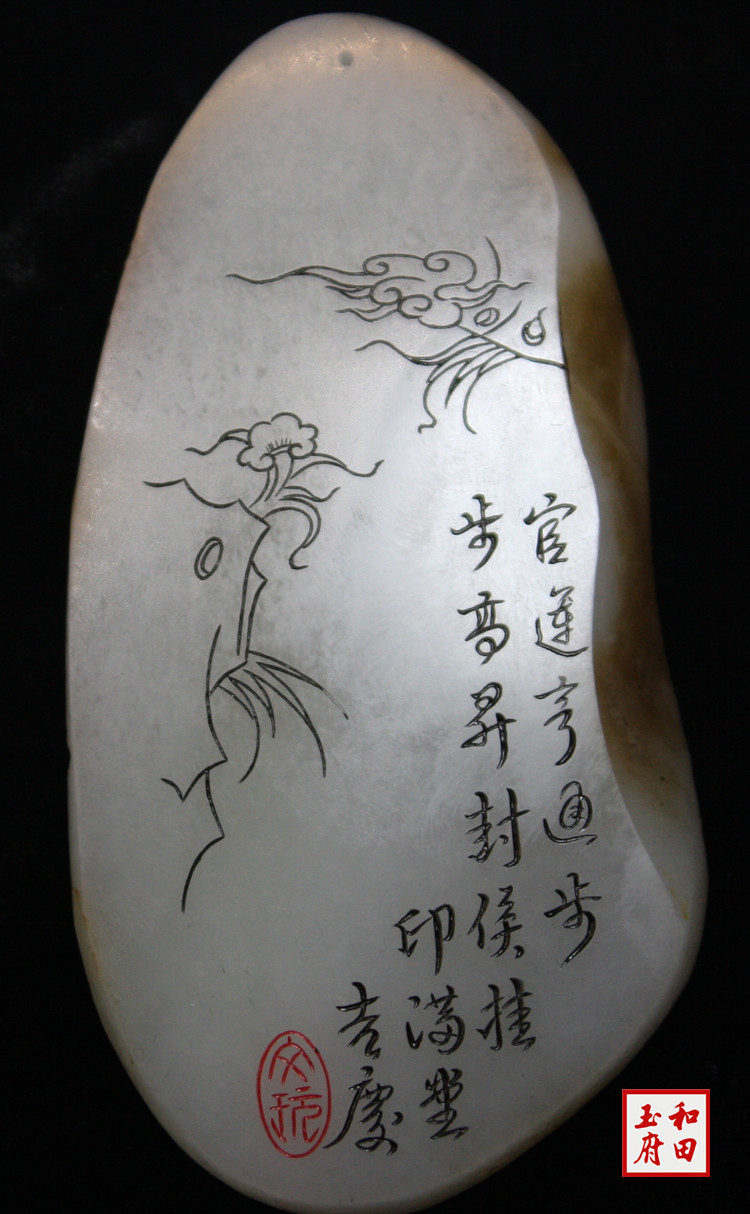 官運亨通步
步高昇封侯挂
印滿堂
吉慶
文玩
和田
玉府